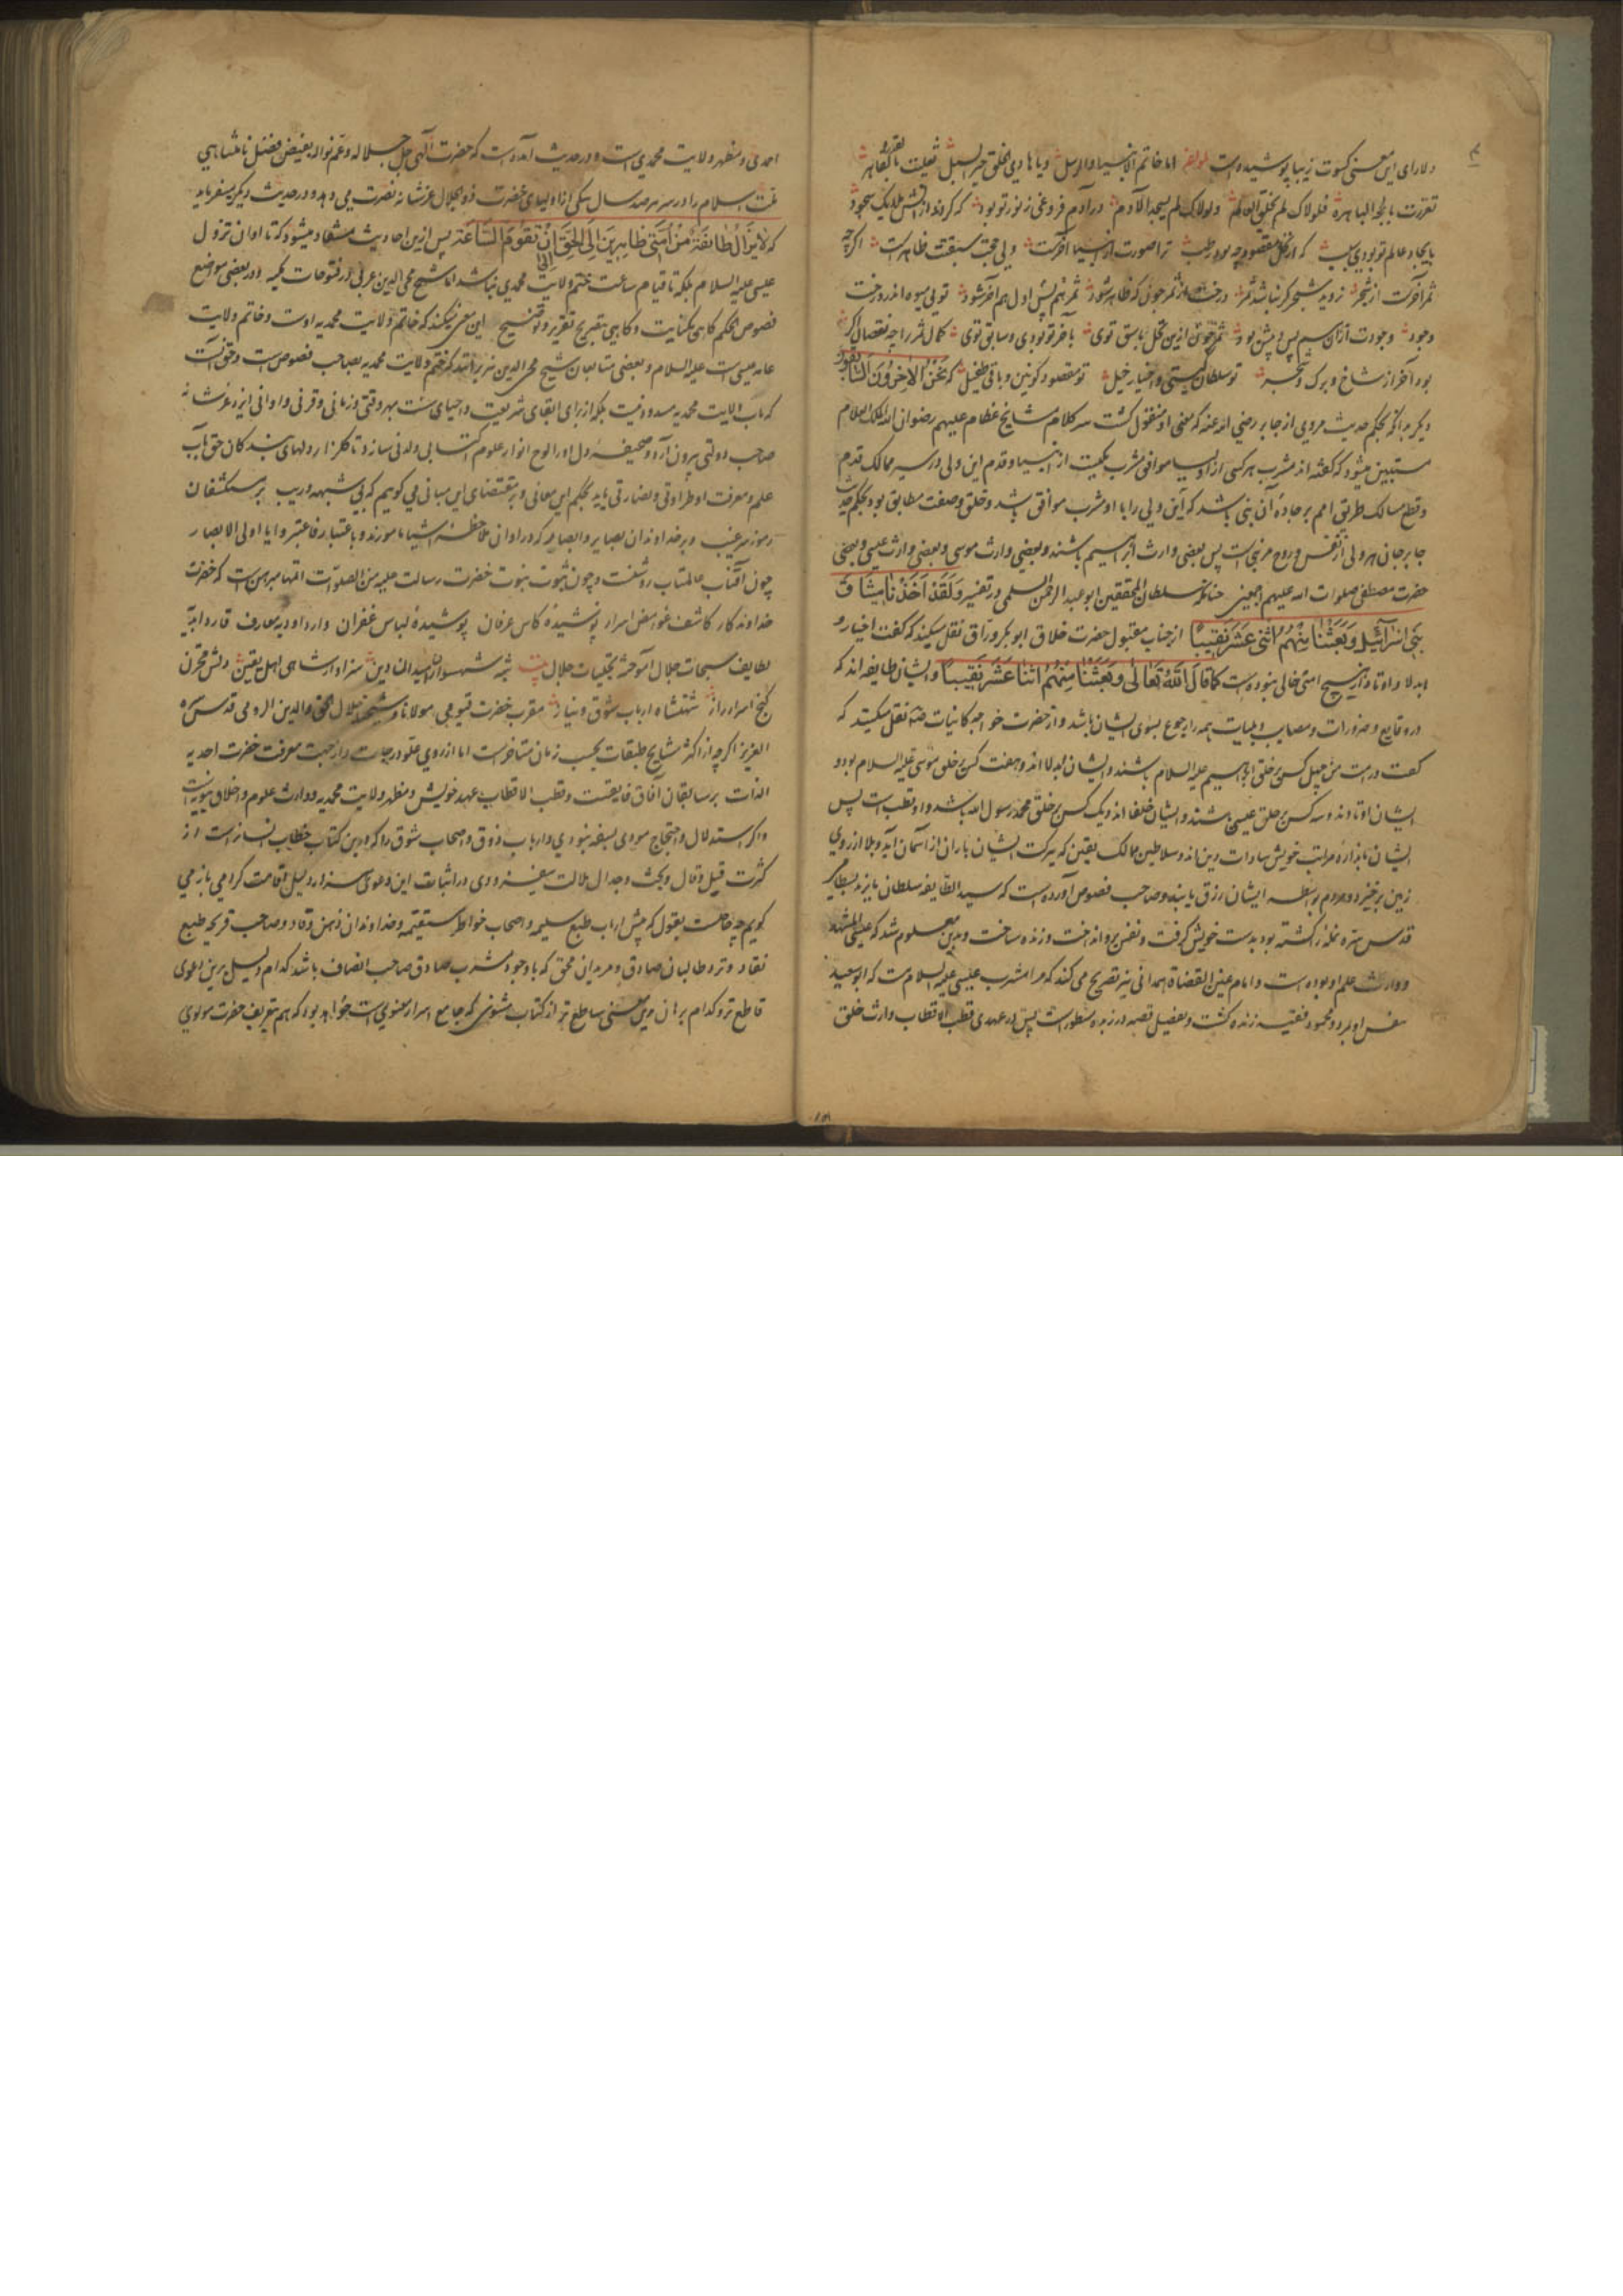 دلارای این معنی کسوت زیبا پوشیده است اما خاتم الانبیا والرسل ویا هادی الخلق خیر السبل
فلولاک لم یخلق العالم ولولاک لم یسجد الآدم در آدم فروغی ز نور تو بود که کردند از پیش ملایک سجود
بایجاد عالم تو بودی سبب که از نخل مقصود چه بود رطب ترا صورت از انبیا آخرست ولی حجت سبقتت ظاهرست اگرچه
ثمر آخرست از شجر نروید شجر گر نباشد ثمر درخت از ثمر چون که ظاهر شود ثمر هم پیش اول هم آخر شود تویی میوه اندر درخت
وجود وجودت ازان سر پس و پیش بود ثمر چون ازین نخل باسق توی بآخر تو بودی و سابق توی کمال ثمر را چه نقصان گر
بود آخر از شاخ و برگ و شجر تو سلطان گیتی و اخیار خیل تو مقصود کونین و باقی طفیل که نحن الاخرون السابقون
دیگر بدانکه بحکم حدیث مروی از جابر رضی الله عنه که معنی او منقول گشت سر کلام مشایخ عظام علیهم رضوان الله الملک العلام
مستبین میشود که گفته اند مشرب هر کسی از اولیا موافق مشرب یکیست از انبیا و قدم این ولی در سیر ممالک قدم
و قطع مسالک طریق امم بر جاده آن نبی باشد که این ولی را با او مشرب موافق باشد و خلق و صفت مطابق بود بحکم حدیث
جابر جان هر ولی از نفس و روح هر نبی است پس بعضی وارث ابراهیم باشند و بعضی وارث موسی و بعضی وارث عیسی و بعضی
حضرت مصطفی صلوات الله علیهم اجمعین چنانکه سلطان المحققین ابو عبد الرحمن السلمی در تفسیر وَلَقَدْ اَخَذْنَا مِیثَاقَ
بَنِی اِسْرَآئِیلَ وَبَعَثْنَا مِنْهُمُ اثْنَی عَشَرَ نَقِیبًا از جناب مقبول حضرت خلاق ابو بکر وراق نقل میکند که گفت اخیار و
ابدلا و اوتاد از هیچ امتی خالی نبوده است کَمَا قَالَ اللهُ تَعَالٰی وَبَعَثْنَا مِنْهُمُ اثْنَا عَشَرَ نَقِیبًا و ایشان طایفه اند که
در وقایع و ضرورات و مصایب و بلیات همه را رجوع بسوی ایشان باشد و از حضرت خواجه کاینات نقل میکند که
گفت در امت من چهل کس بر خلق ابراهیم علیه السلام باشند و ایشان ابدلا اند و هفت کس بر خلق موسی علیه السلام بود و
ایشان اوتادند و سه کس بر خلق عیسی باشند و ایشان خلفا اند و یک کس بر خلق محمد رسول الله باشد و او قطب است پس
ایشان باندازه مراتب خویش سادات دین اند و سلاطین ممالک یقین که ببرکت ایشان باران از آسمان آید و بلا از روی
زمین برخیزد و مردم بواسطه ایشان رزق یابند و صاحب فصوص آورده است که سید الطایفه سلطان بایزید بسطامی
قدس سره نمله را کشته بود بدست خویش گرفت و نفس برو انداخت و زنده ساخت و بدین معلوم شد که عیسی المشهد
و وارث علم او بوده است و امام عین القضاة همدانی نیز تصریح می کند که مرا مشرب عیسی علیه السلام است که ابو سعید
بمرد و محمود فقیه زنده گشت و تفصیل قصه در زبده مسطور است پس در عهدی قطب الاقطاب وارث خلق
احمدی و مظهر ولایت محمدی است و در حدیث آمده است که حضرت الهی جل جلاله و عم نواله بفیض فضل نامتناهی
ملت اسلام را در سر هر صد سال بیکی از اولیای حضرت ذو الجلال عز شانه نصرت می دهد و در حدیث دیگر میفرماید
که لَا یَزَالُ طَائِفَةٌ مِنْ اُمَّتِی ظَاهِرِینَ اِلَی الْحَقِّ اِلَی اَنْ تَقُومَ السَّاعَةُ پس ازین احادیث مستفاد میشود که تا اوان نزول
عیسی علیه السلام بلکه تا قیام ساعت ختم ولایت محمدی نباشد اما شیخ محی الدین عربی در فتوحات مکیه و در بعضی مواضع
فصوص الحکم گاهی بکنایت و گاهی بتصریح تقریر و توضیح این معنی میکند که خاتم ولایت محمدیه اوست و خاتم ولایت
عامه عیسی است علیه السلام و بعضی متابعان شیخ محی الدین نیز برآنند که ختم ولایت محمدیه بصاحب فصوص است و حق آنست
که باب ولایت محمدیه مسدود نیست بلکه از برای ابقای شریعت و احیای سنت بهر وقتی و زمانی و قرنی و اوانی ایزد عز شانه
صاحب دولتی بیرون آرد و صحیفه دل او را لوح انوار علوم اکتسابی و لدنی سازد تا گلزار دلهای بندگان حق بآب
علم و معرفت او طراوتی و نضارتی یابد بحکم این معانی و بر مقتضای این مبانی می گویم که بی شبهه و ریب بر مستکشفان
رموز سر غیب و بر خداوندان بصایر و ابصار که در اوان ملاحظه اشیا مامورند و با عتبار فاعتبروا یا اولی الابصار
چون آفتاب عالمتاب روشنست و چون ثبوت نبوت حضرت رسالت علیه من الصلوات اتمها مبرهن است که حضرت
خداوندکار کاشف غوامض اسرار نوشیده کاس عرفان پوشیده لباس غفران
لطایف سبحات جلال آموخته تجلیات جلال بیت شه شهسواران میدان دین سزاوار شاهی اهل یقین دلش مخزن
گنج اسرار راز شهنشاه ارباب شوق و نیاز مقرب حضرت قیومی مولانا و شیخنا جلال الحق والدین الرومی قدس سره
العزیز اگرچه از اکثر مشایخ طبقات بحسب زمان متاخرست اما از روی علو درجات و از جهت معرفت حضرت احدیه
الذات بر سابقان آفاق فایقست و قطب الاقطاب عهد خویش و مظهر ولایت محمدیه و وارث علوم و اخلاق نبویه است
و اگر استدلال و احتجاج مودی بسفه نبودی و ارباب ذوق و اصحاب شوق را که درین کتاب خطاب با ایشانست از
کثرت قیل و قال و بحث و جدال ملالت نیفزودی در اثبات این دعوی هزار دلیل اقامت کردمی باز می
گویم چه حاجت بقول که پیش ارباب طبع سلیمه و اصحاب خواطر مستقیمه و خداوندان ذهن وقاد و صاحب قریحه طبع
نقاد و نزد طالبان صادق و مریدان محق که با وجود مشرب صادق صاحب انصاف باشد کدام دلیل برین دعوی
قاطع تر و کدام برهان برین معنی ساطع تر از کتاب مثنوی که جامع اسرار معنوی است خواهد بود که هم بتعریف حضرت مولوی